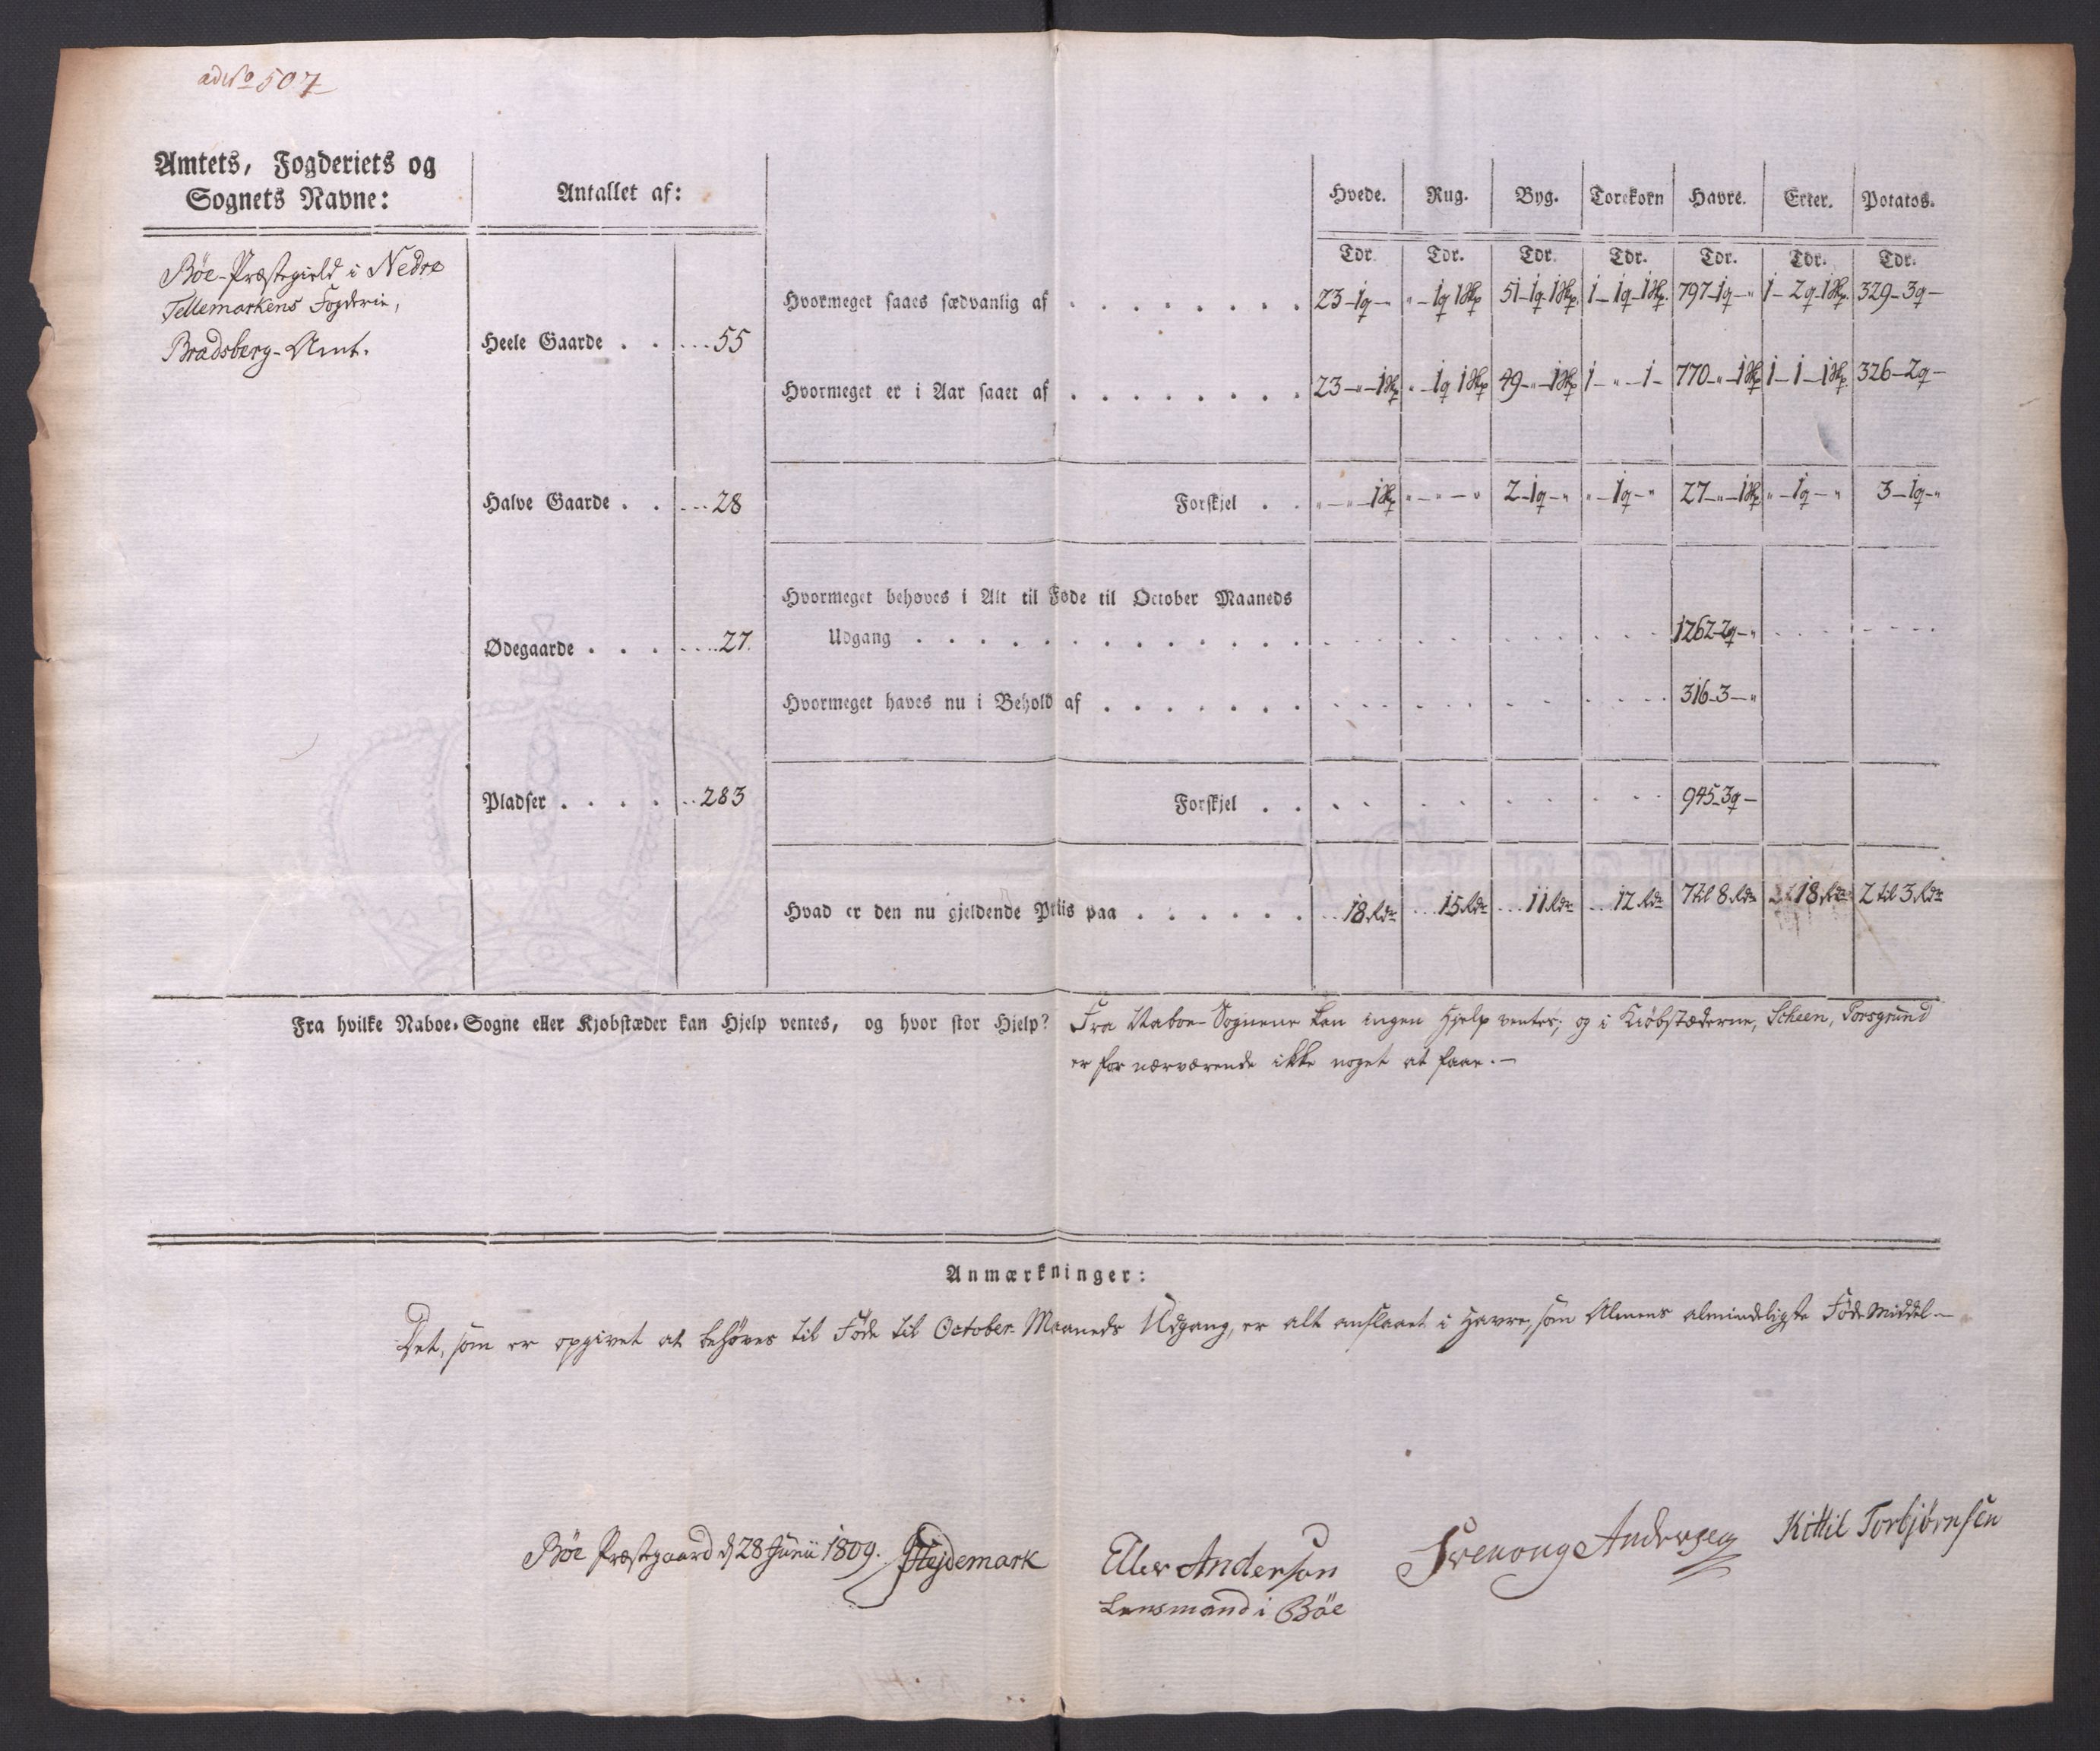 ad No 507
Amtets, Fogderiets og
Sognets Navne:
Antallet af:
Hvede. Rug. Byg. Torekorn Havre. Erter. Potatos.
Tdr. Tdr. Tdr. Tdr. Tdr. Tdr. Tdr.
Bøe-Præstegield i Nedre
Tellemarkens Fogderie,
Bradsberg-Amt.
Heele Gaarde . . ... 55
Halve Gaarde . . ... 28
Ødegaarde . . . .... 27.
Pladser . . . . .. 283
Hvormeget saaes sædvanlig af . . . . . . . 23-1q-" "-1q 1Skp 51-1q-1Skp. 1-1q-1Skp. 797-1q-" 1-2q-1Skp. 329-3q-
Hvormeget er i Aar saaet af . . . . . . . . 23-"-1Skp "-1q 1Skp 49-"-1Skp 1-"-1- 770-"-1Skp 1-1-1Skp 326-2q-
Forskjel . . "-"-1Skp "-"-" 2-1q-" "-1q-" 27-"-1Skp "-1q-" 3-1q-"
Hvormeget behøves i Alt til Føde til October Maaneds
Udgang . . . . . . . . . . . . 1262-2q-"
Hvormeget haves nu i Behold af . . . . . . . 316-3-"
Forskjel . . 945-3q-
Hvad er den nu gjeldende Priis paa . . . . . . ..18 Rdr ...15 Rdr ...11 Rdr ...12 Rdr 7 til 8 Rdr 18 Rdr 2 til 3 Rdr
Fra hvilke Naboe-Sogne eller Kjøbstæder kan Hjelp ventes, og hvor stor Hjelp? Fra Naboe-Sognene kan ingen Hjelp ventes; og i Kiøbstæderne, Scheen, Porsgrund
er for nærværende ikke noget at faae.-
Anmærkninger:
Det, som er opgivet at behøves til Føde til October-Maaneds Udgang, er alt anslaaet i Havre, som Almens almindeligste Føde Middel-
Bøe Præstegaard d 28 Junii 1809. Hejdemark
Eller Anderson
Lensmand i Bøe
Andersen
Kittil Torbjørnsen